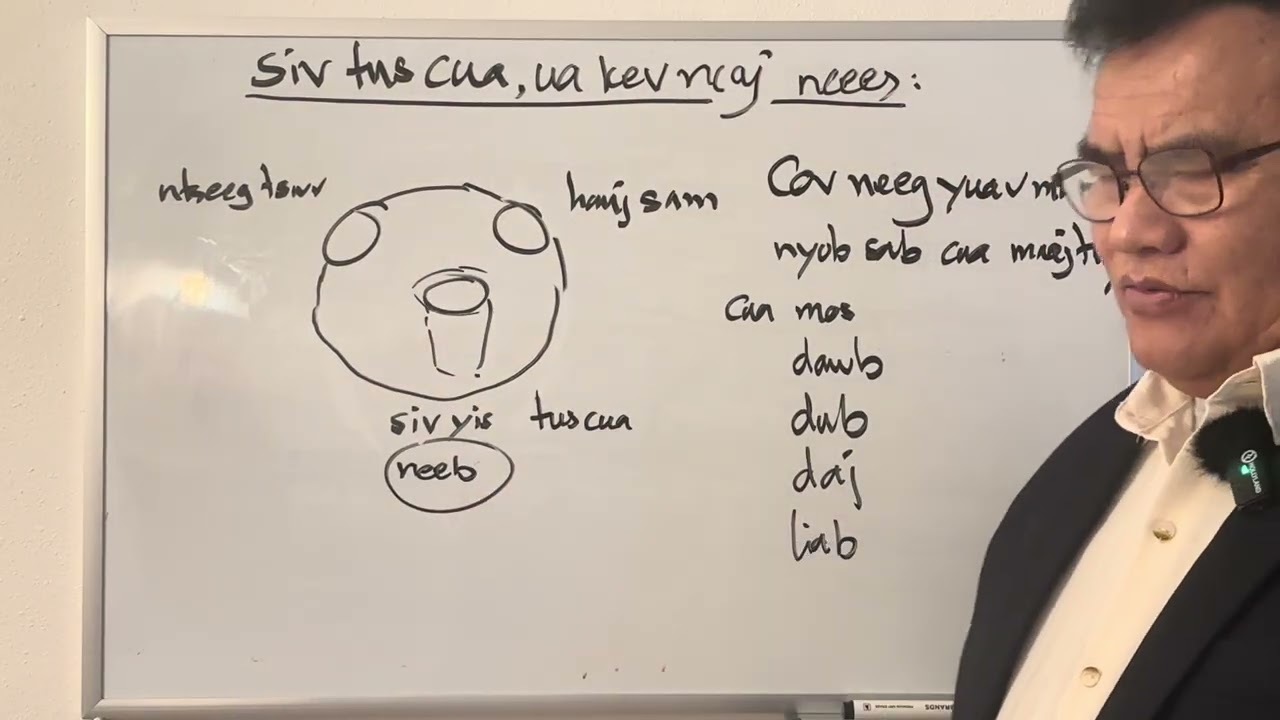 siv tus cua, ua kev ncaj ncees:
ntseeg tswv
hauj sam
siv yis tus cua
neeb
Cov neeg yuav
nyob sab cua
cua mos
dawb
dub
daj
liab
HOLLYLAND